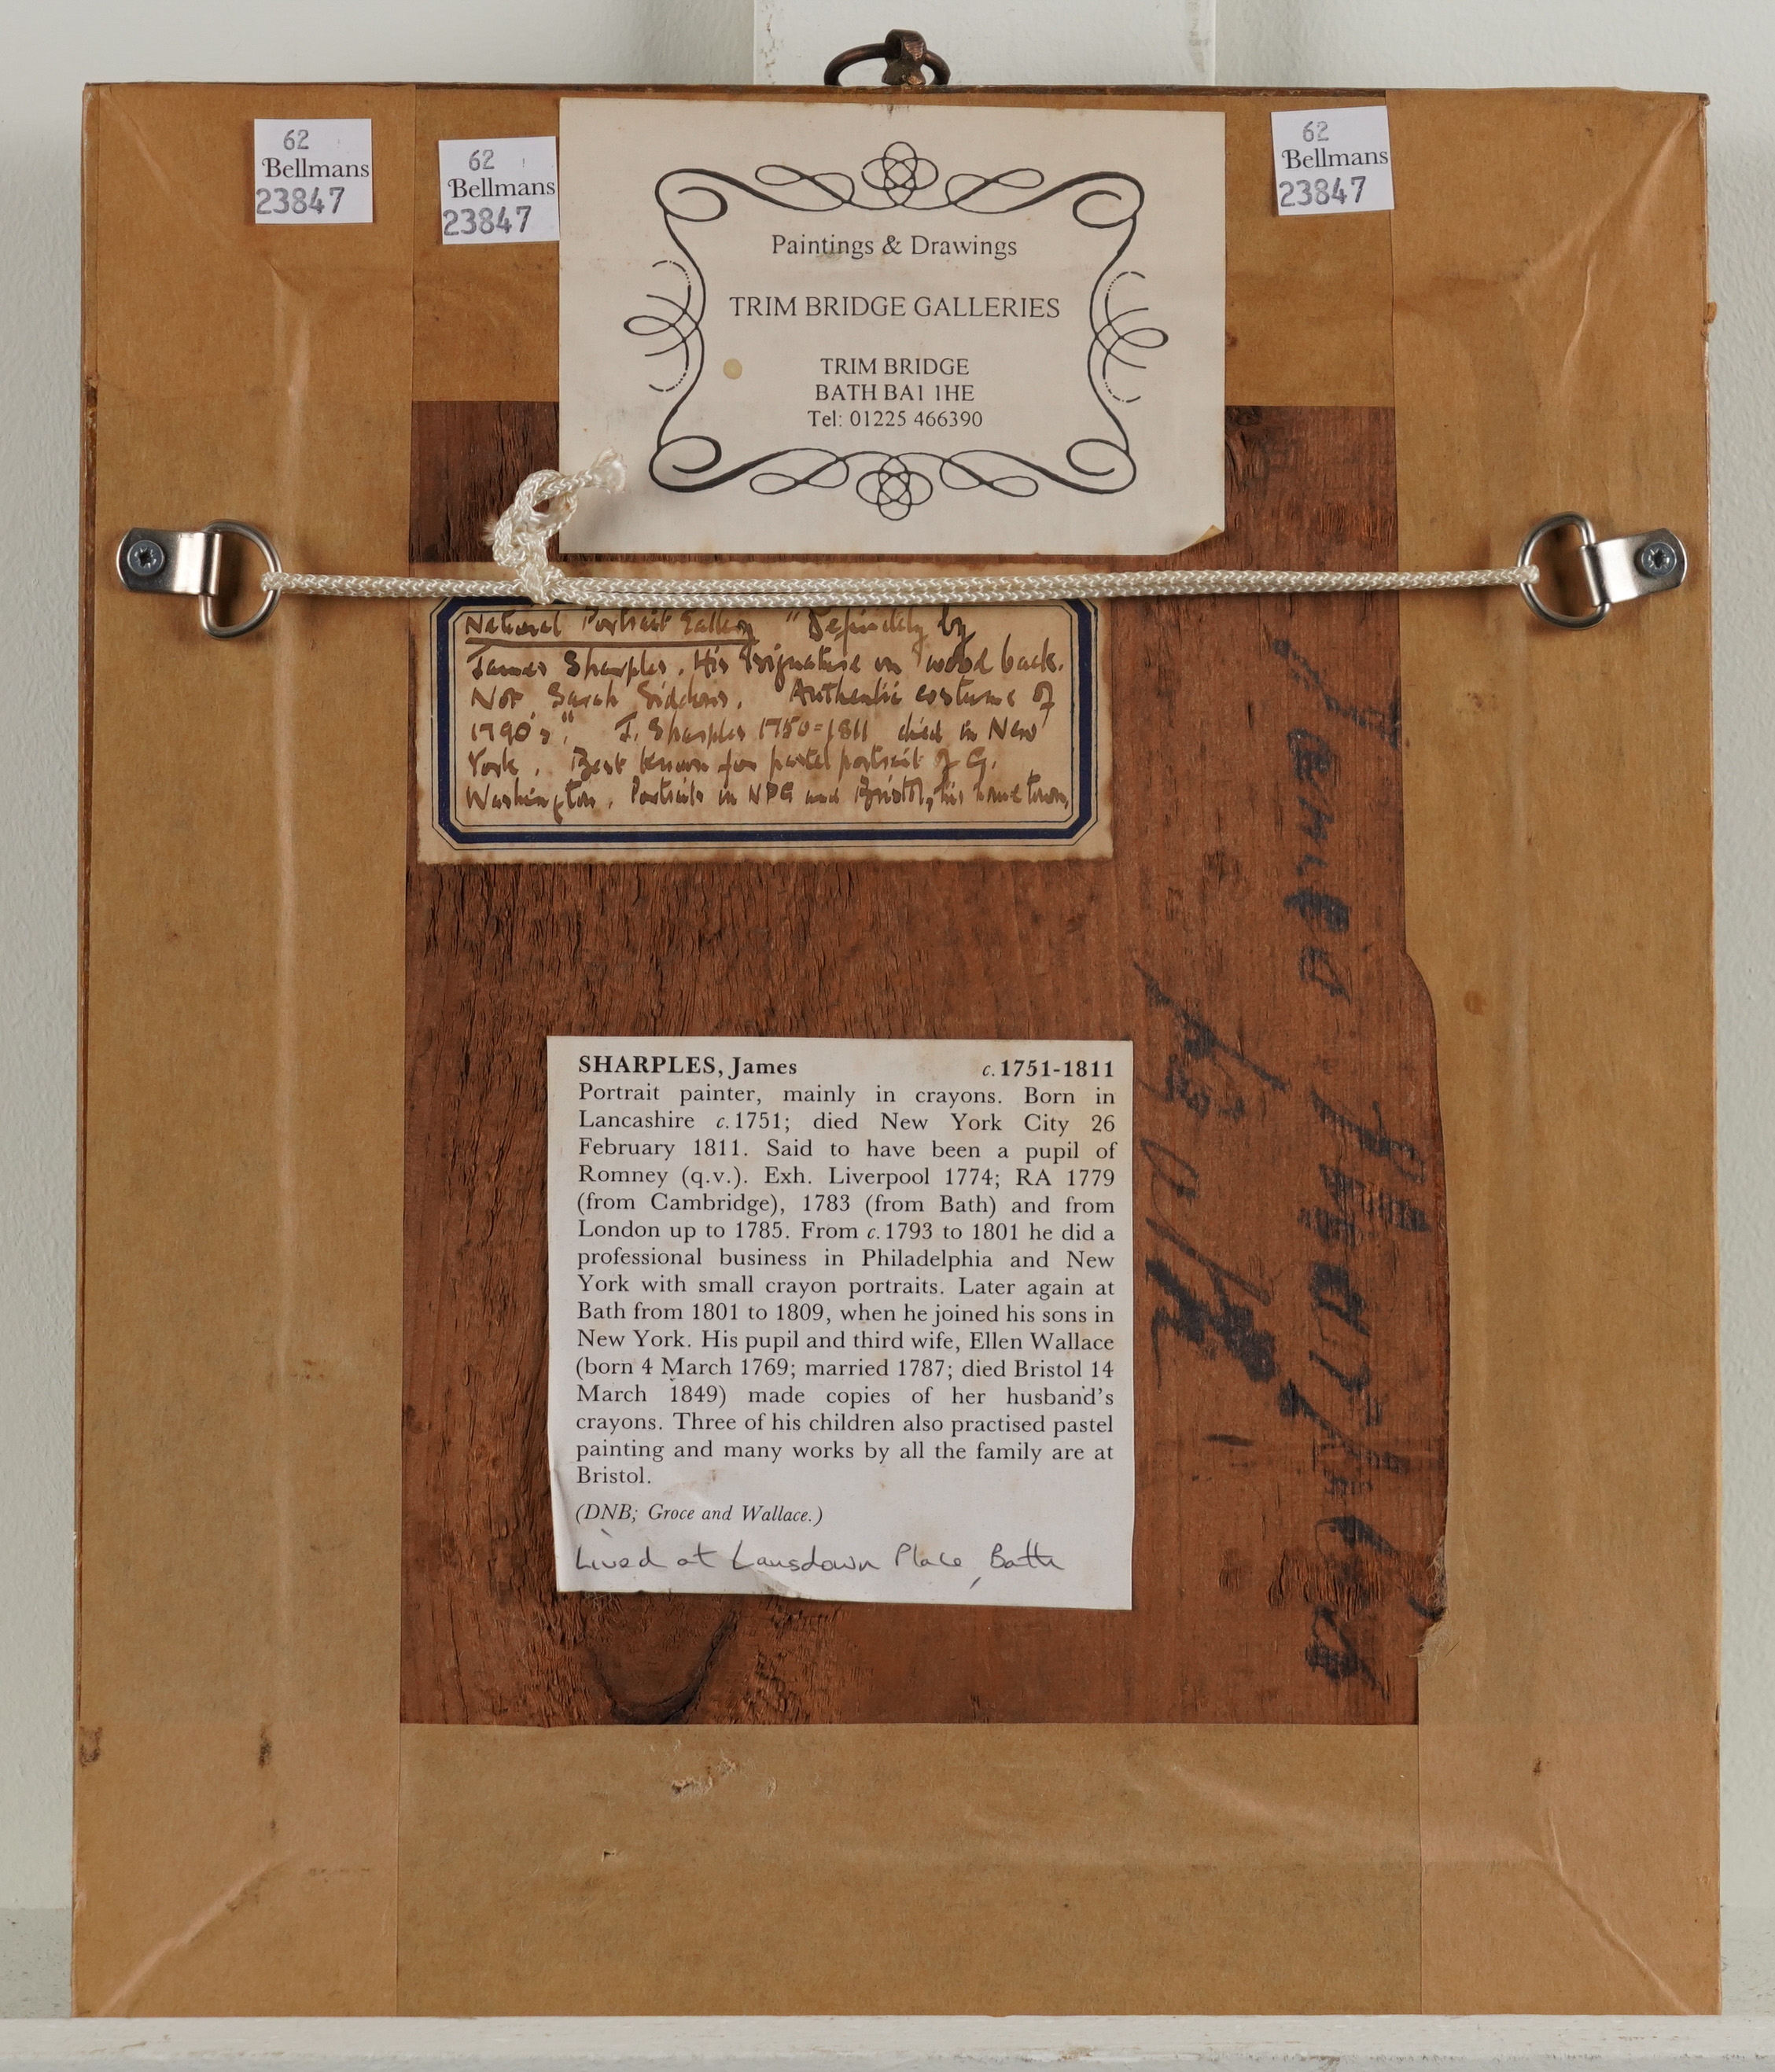 62
Bellmans
23847
62
Bellmans
23847
62
Bellmans
23847
Paintings & Drawings
TRIM BRIDGE GALLERIES
TRIM BRIDGE
BATH BA1 1HE
Tel: 01225 466390
National Portrait Gallery "Definitely by
James Sharples. His signature on wood back.
Not Sarah Siddons. Authentic costume of
1790's". J. Sharples 1750=1811 died in New
York. Best known for pastel portrait of G.
Washington. Portraits in NPG and Bristol, his home town,
SHARPLES, James c. 1751-1811
Portrait painter, mainly in crayons. Born in
Lancashire c. 1751; died New York City 26
February 1811. Said to have been a pupil of
Romney (q.v.). Exh. Liverpool 1774; RA 1779
(from Cambridge), 1783 (from Bath) and from
London up to 1785. From c. 1793 to 1801 he did a
professional business in Philadelphia and New
York with small crayon portraits. Later again at
Bath from 1801 to 1809, when he joined his sons in
New York. His pupil and third wife, Ellen Wallace
(born 4 March 1769; married 1787; died Bristol 14
March 1849) made copies of her husband's
crayons. Three of his children also practised pastel
painting and many works by all the family are at
Bristol.
(DNB; Groce and Wallace.)
Lived at Lansdown Place, Bath
James Sharples